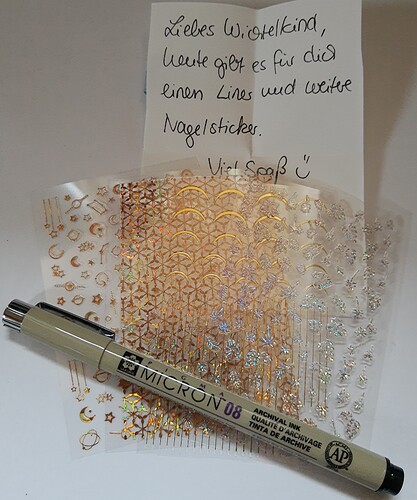 Liebes Wichtelkind,
heute gibt es für dich
einen Liner und weitere
Nagelsticker.
Viel Spaß
PIGMA
MICRON 08
ARCHIVAL INK
QUALITÉ D'ARCHIVAGE
TINTA DE ARCHIVE
AP